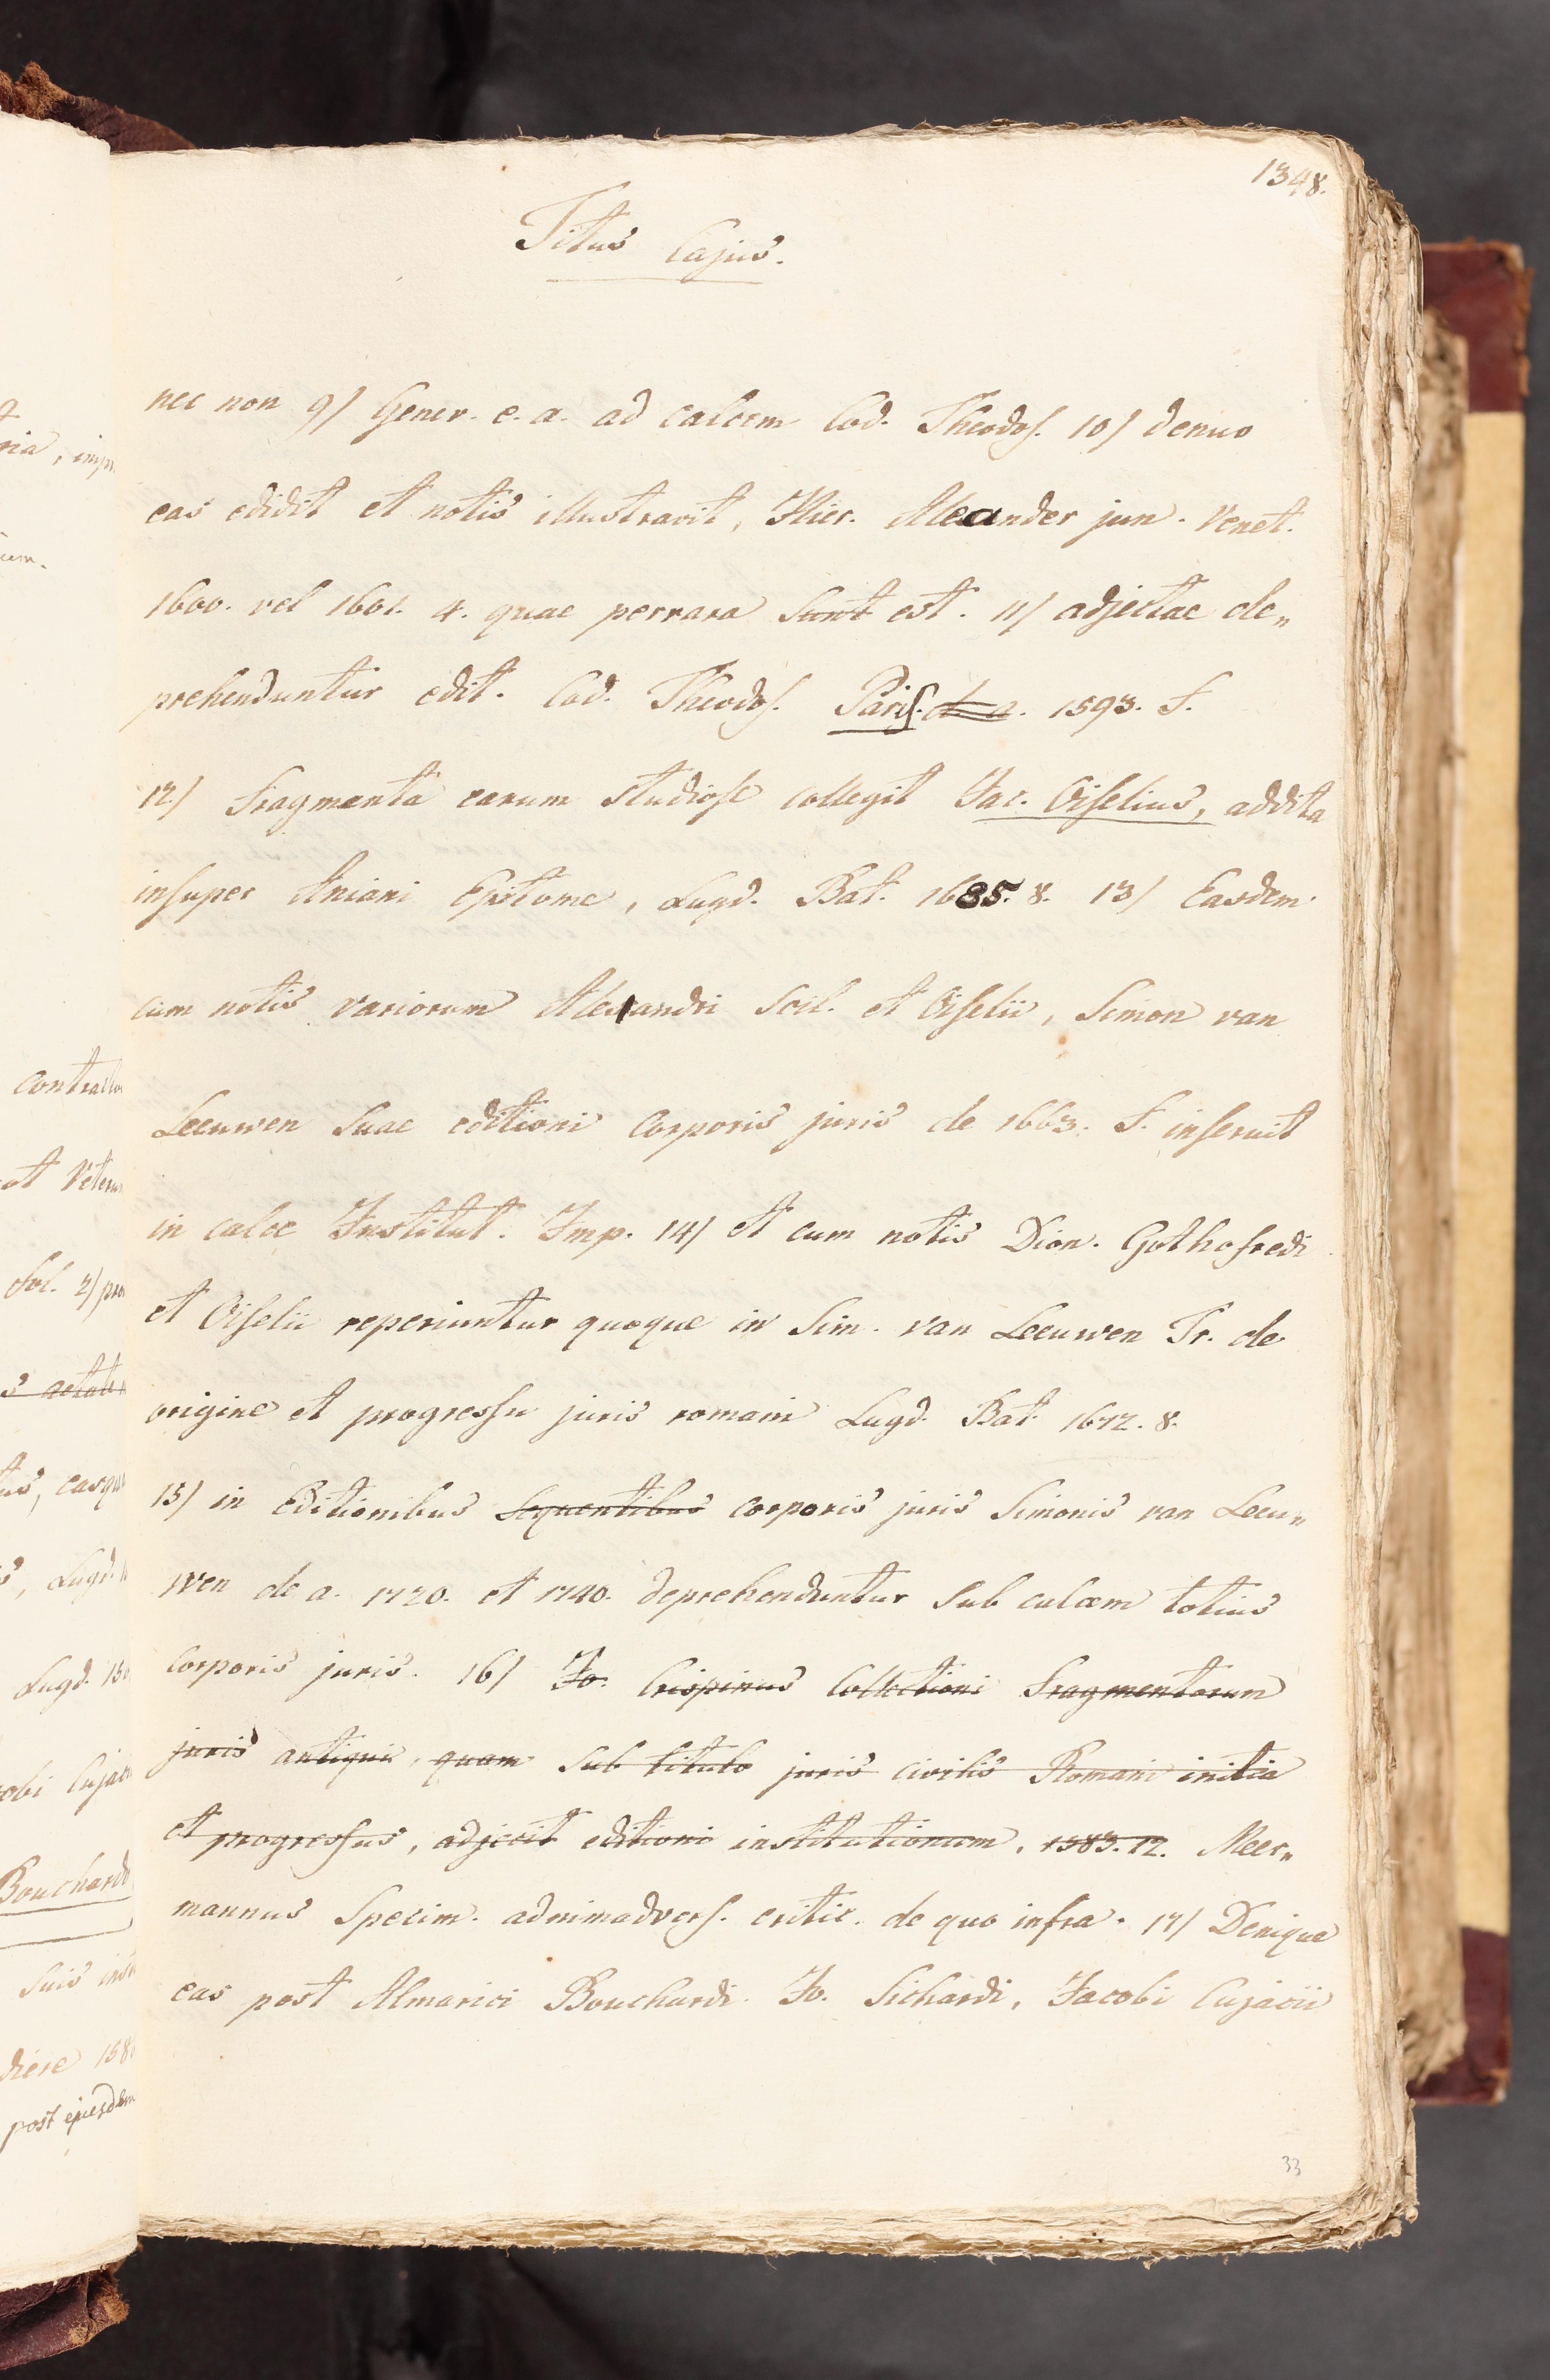 1348.
Titus Cajus.
nec non 9) Genev. e. a. ad calcem Cod. Theodos. 10) denuo
eas edidit et notis illustravit, Hier. Aleander jun. Venet.
1600. vel 1601. 4. quae perrara sunt est. 11) adjectae de„
prehenduntur edit. Cod. Theodos. Paris. d. a. 1593. F.
12) Fragmenta earum studiose collegit Jac. Oiselius, addita
insuper Aniani Epitome, Lugd. Bat. 1685. 8. 13) Easdem
cum notis variorum Aleandri scil. et Oiselii, Simon van
Leeuwen suae editioni Corporis juris de 1663. F. inseruit
in calce Institut. Imp. 14) et cum notis Dion. Gothofredi
et Oiselii reperiuntur quoque in Sim. van Leeuwen Tr. de
origine et progressu juris romani Lugd. Bat. 1672. 8.
15) in Editionibus sequentibus corporis juris Simonis van Leeu„
wen de a. 1720. et 1740. deprehenduntur sub calcem totius
Corporis juris. 16) Jo. Crispinus Collectioni Fragmentorum
juris antiqui, quam sub titulo juris civilis Romani initia
et progressus, adjecit editioni institutionum, 1583. 12. Meer„
mannus Specim. adnimadvers. critic. de quo infra. 17) Denique
eas post Almarici Bouchardi. Jo. Sichardi, Jacobi Cujacii
33
contractu
et Veterum
Fol. 2)
s aetate
Lugd.
Lugd. 15
obi Cujac
Bouchardi
suis
diere 158
post ejusdem